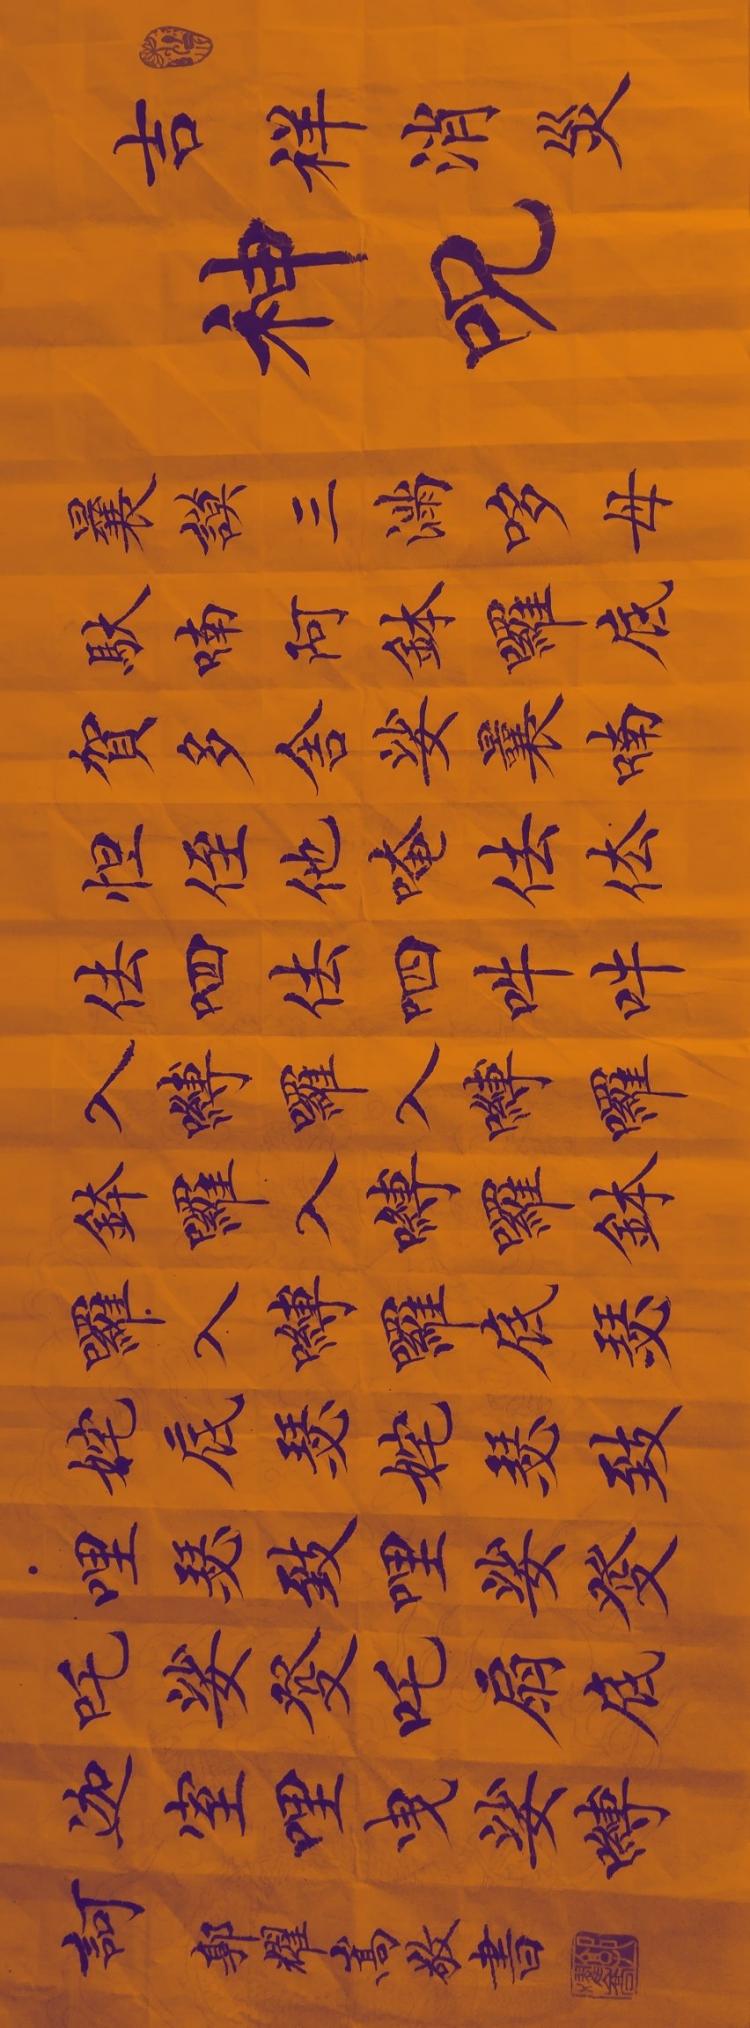 吉祥消災
神咒
曩謨三滿哆母
馱喃阿鉢囉底
賀多舍娑曩喃
怛姪他唵佉佉
佉呬佉呬吽吽
入嚩囉入嚩囉
鉢囉入嚩囉鉢
囉入嚩囉底瑟
姹底瑟姹瑟致
哩瑟致哩娑發
吒娑發吒扇底
迦室哩曳娑嚩
訶 郭耀敬書